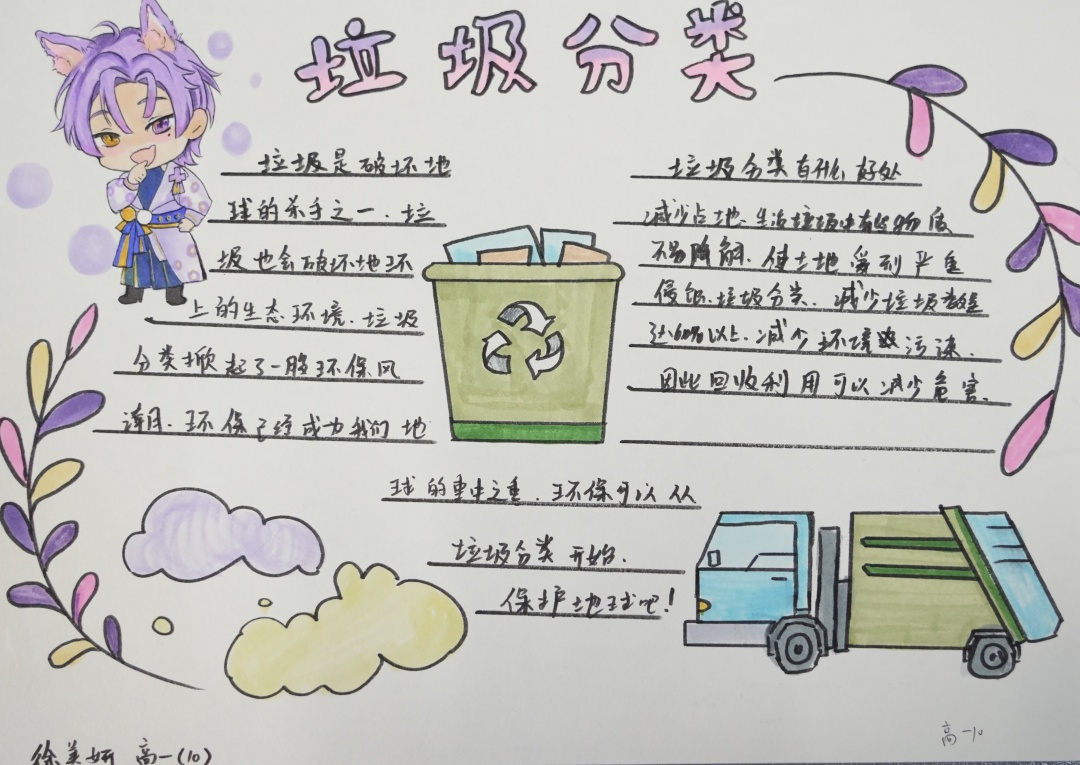 垃圾分类
垃圾是破坏地
球的杀手之一.垃
圾也会破坏地球
上的生态环境.垃圾
分类掀起了一股环保风
潮.环保已经成为我们地
球的重中之重.环保可以从
垃圾分类开始.
保护地球吧!
垃圾分类有什么好处
减少占地.生活垃圾中有些物质
不易降解.使土地受到严重
侵蚀.垃圾分类.减少垃圾数量
达60%以上.减少环境污染.
因此回收利用可以减少危害.
徐美妍 高一(10)
高一10